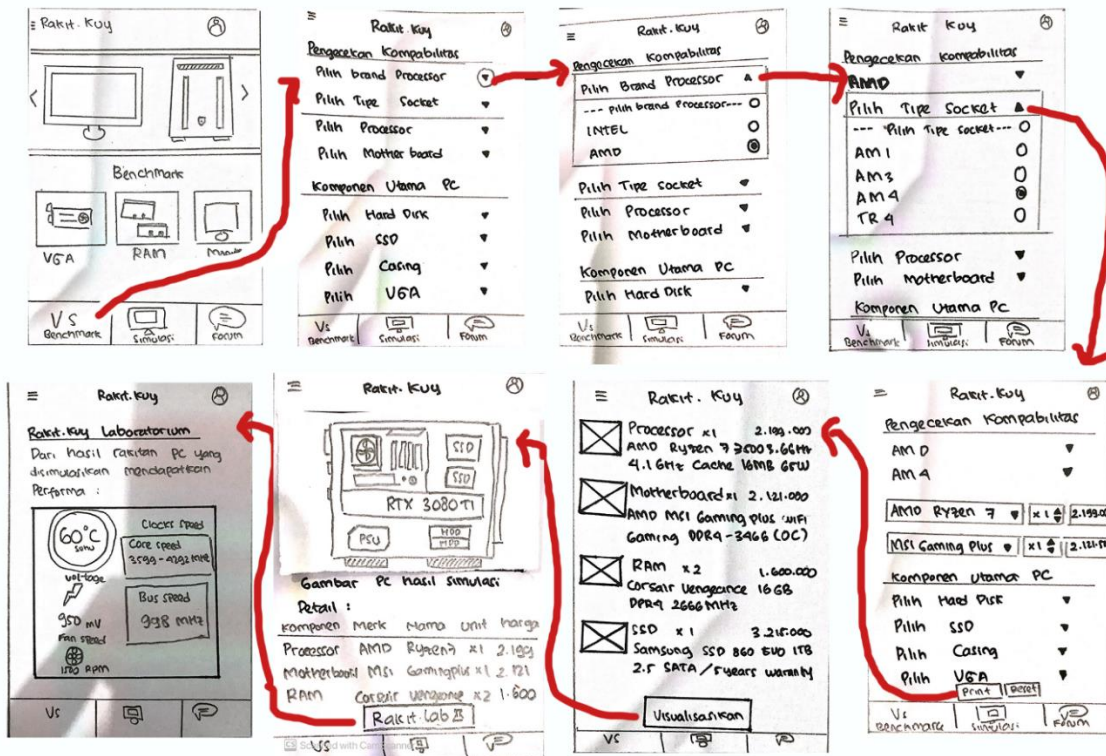 Rakit. Kuy
Benchmark
VGA
RAM
Vs
Benchmark
Simulasi
Forum
Rakit. Kuy
Pengecekan Kompabilitas
Pilih brand Processor
Pilih Tipe Socket
Pilih Processor
Pilih Mother board
Komponen Utama PC
Pilih Hard Disk
Pilih SSD
Pilih Casing
Pilih VGA
Vs
Benchmark
Simulasi
Forum
Rakit. Kuy
Pengecekan Kompabilitas
Pilih Brand Processor
--- Pilih brand Processor---
INTEL
AMD
Pilih Tipe Socket
Pilih Processor
Pilih Motherboard
Komponen Utama PC
Pilih Hard Disk
Vs
Benchmark
Simulasi
Forum
Rakit. Kuy
Pengecekan Kompabilitas
AMD
Pilih Tipe Socket
--- Pilih Tipe Socket---
AM 1
AM 3
AM 4
TR 4
Pilih Processor
Pilih Motherboard
Komponen Utama PC
Vs
Benchmark
Simulasi
Forum
Rakit. Kuy
Rakit. Kuy Laboratorium
Dari hasil rakitan PC yang
disimulasikan mendapatkan
Performa :
60°C
suhu
Clocks speed
Core speed
3599 - 4292 MHz
voltage
950 mV
Bus speed
998 MHz
Fan speed
1500 RPM
Vs
Rakit. Kuy
SSD
SSD
RTX 3080 TI
PSU
HDD
HDD
Gambar PC hasil simulasi
Detail :
Komponen Merk Nama Unit harga
Processor AMD Ryzen 7 x1 2.199
Motherboard MSI Gamingplus x1 2.121
RAM Corsair vengeance x2 1.600
Rakit. Lab
VS
CS Scanned with CamScanner
Rakit. Kuy
Processor x1 2.199.000
AMD Ryzen 7 3500 3.6GHz
4.1 GHz Cache 16MB 65W
Motherboard x1 2.121.000
AMD MSI Gaming plus WiFi
Gaming DDR4-3466 (OC)
RAM x 2 1.600.000
Corsair Vengeance 16GB
DDR4 2666 MHz
SSD x 1 3.215.000
Samsung SSD 860 EVO 1TB
2.5 SATA / 5 years warranty
Visualisasikan
VS
Rakit. Kuy
Pengecekan Kompabilitas
AM D
AM 4
AMD Ryzen 7 x1
MSI Gaming Plus x1
Komponen Utama PC
Pilih Hard Disk
Pilih SSD
Pilih Casing
Pilih VGA
Print Reset
Vs
Benchmark
Simulasi
Forum